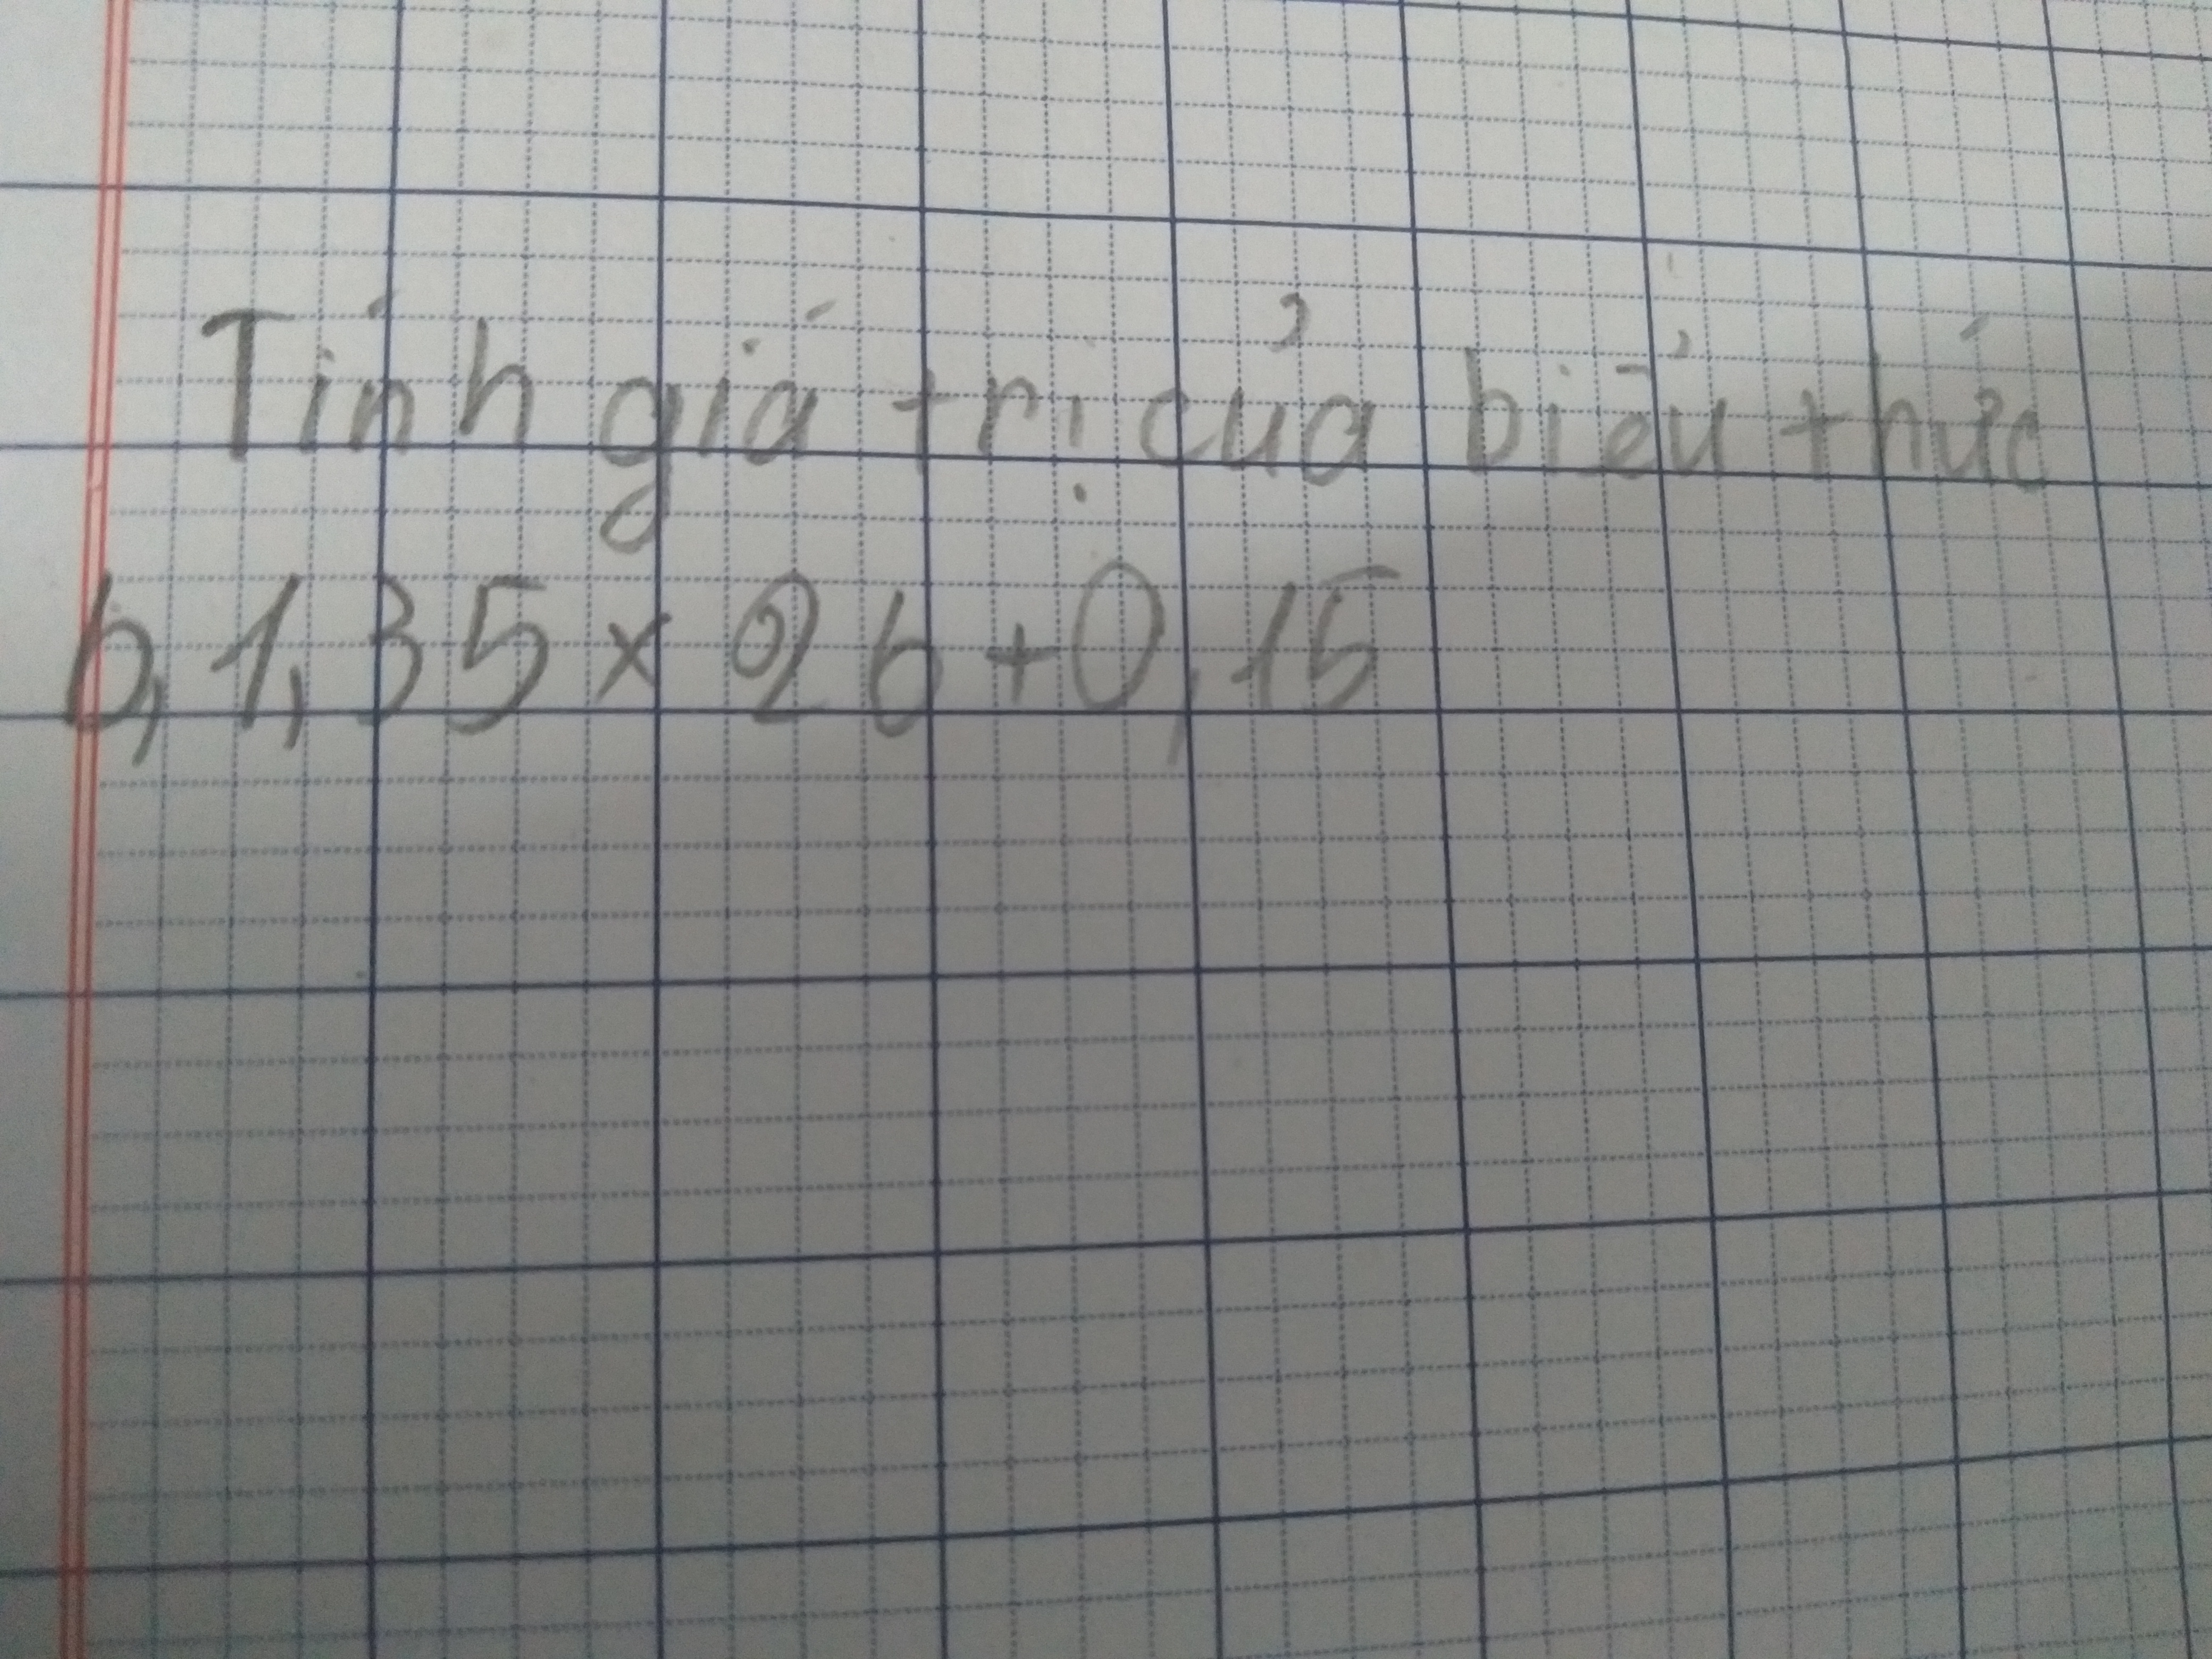 Tính giá trị của biểu thức
b, 1,35 × 26 + 0,15